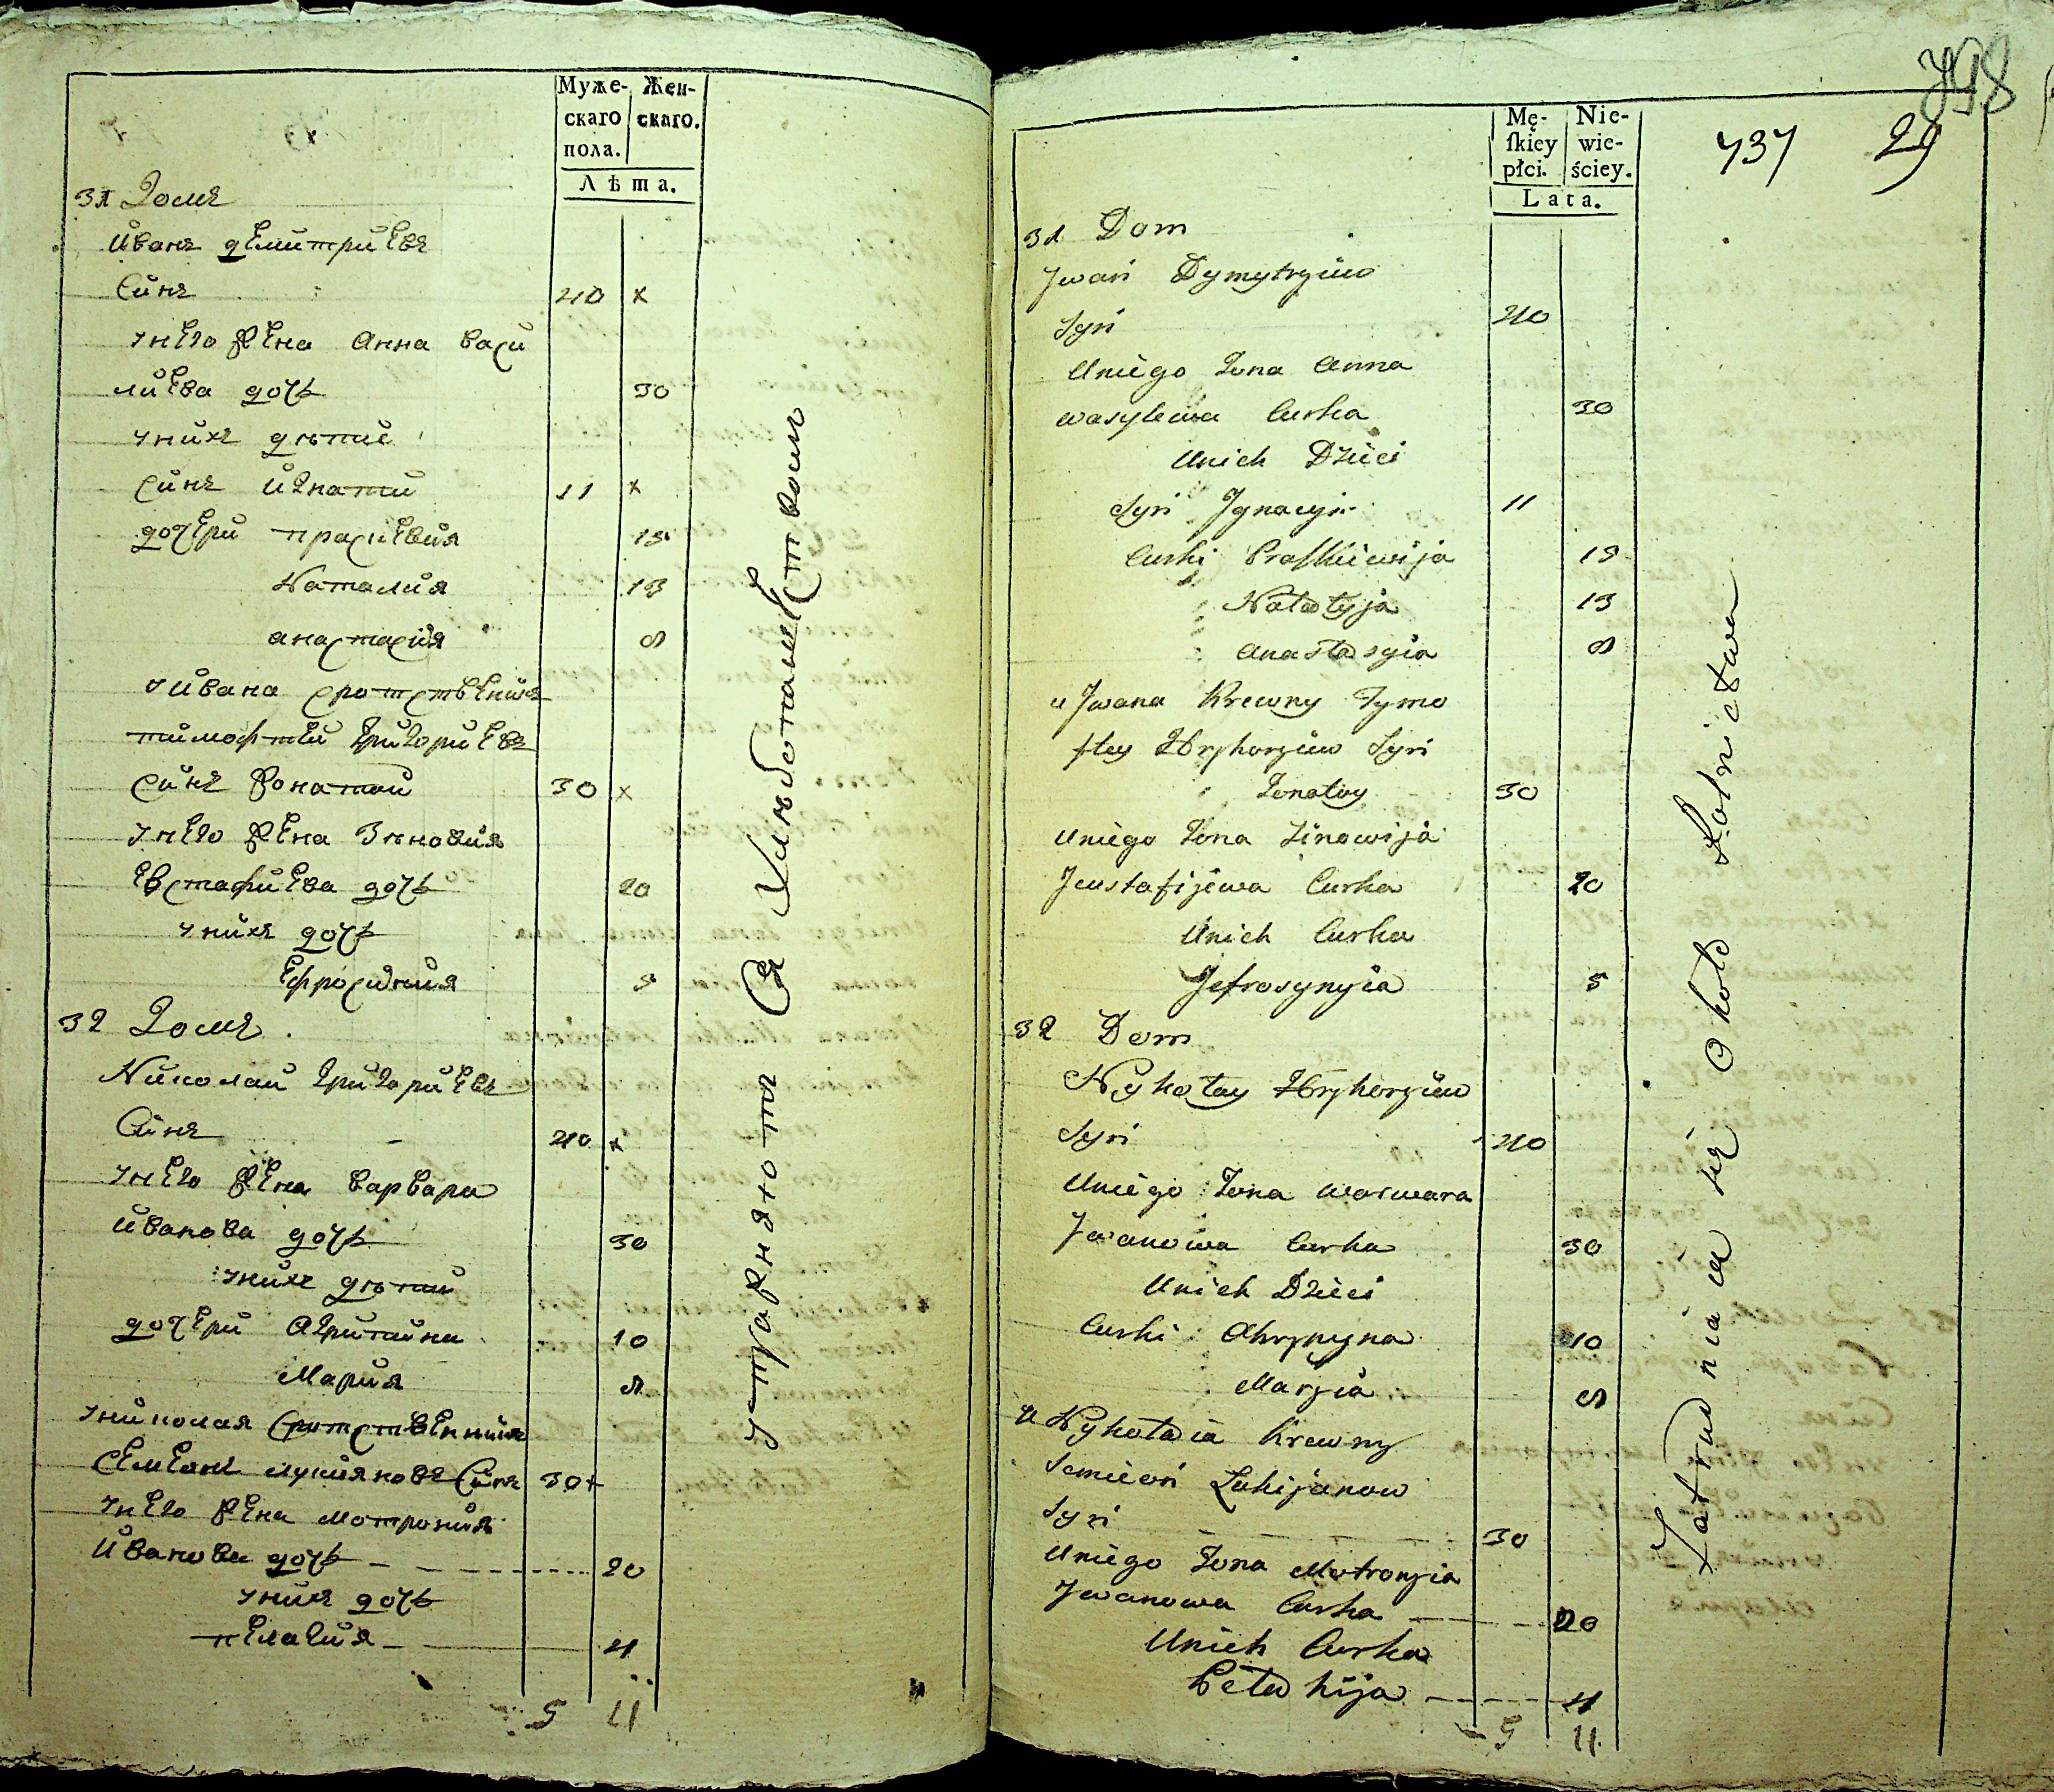 Муже- Жен-
скаго скаго.
пола.
Лѣта.
31 Домъ
Иванъ демитриевъ
Синъ 40 x
унего жена Анна васи
лиева дочь 30
унихъ дѣти
Синъ Игнатий 11 x
дочери прасцевия 15
Наталия 13
анастасия 8
уИвана сротственикъ
тимофтей григориевъ
Синъ жонатий 30 x
унего жена Зѣновия
евстафиева дочь 20
унихъ дочь
Ефросиния 5
32 Домъ
Николай григориевъ
Синъ 40 x
унего жена варвара
иванова дочь 30
унихъ дѣтий
дочери Агрипина 10
Мария 8
униколая сротственикъ
семионъ лукияновъ Синъ 30 +
унего жена мотрония
Иванова дочь 20
унихъ дочь
пелагия 4
5 11
упражняютъ Ся Хлѣбопашеством
398
737 29
Mę- Nie-
skiey wie-
płci. ściey.
Lata.
31 Dom
Jwan Dymytryiew
Syn 40
Uniego Zona Anna
wasylewa Curka 30
Unich Dzieci
Syn Jgnacyi 11
Curki Praskiewija 15
Natalyja 13
Anastasyia 8
u Jwana Krewny Tymo
ftey Hryhoryiew Syn
Zonatoy 30
Uniego Zona Zinowija
Jeustafijewa Curka 20
Unich Curka
Jefrosynyia 5
32 Dom
Nykołay Hryhoryiew
Syn 40
Uniego Zona warwara
Jwanowa Curka 30
Unich Dzieci
Curki Ahrypyna 10
Maryia 8
u Nykołaia Krewny
Semieon Łukijanow
Syn 30
Uniego Zona Motronyia
Jwanowa Curka 20
Unich Curka
Pełahija 4
5 11
Zatrudniaia się Około Rolnictwa